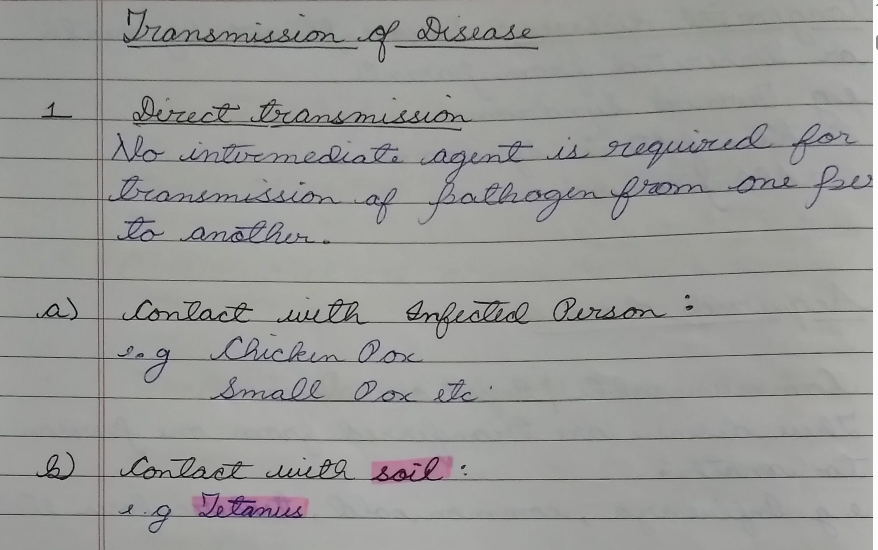 Transmission of Disease
1 Direct transmission
No intermediate agent is required for
transmission of pathogen from one pe
to another.
a) Contact with Infected Person :
e.g Chicken Pox
Small Pox etc.
b) Contact with soil :
e.g Tetanus